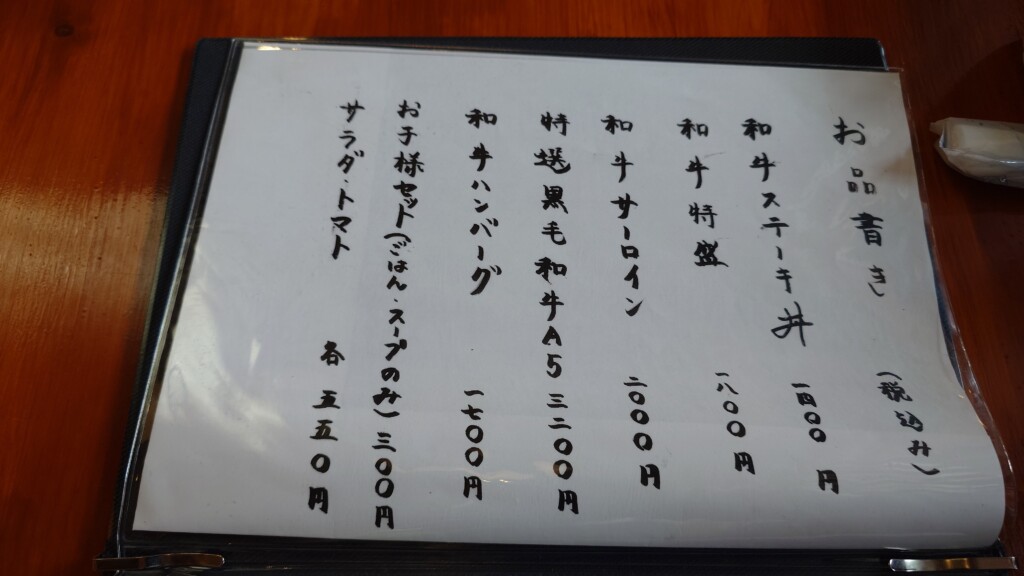 お品書き (税込み)
和牛ステーキ丼 一四〇〇円
和牛特盛 一八〇〇円
和牛サーロイン 二〇〇〇円
特送黒毛和牛A5 三二〇〇円
和牛ハンバーグ 一七〇〇円
お子様セット(ごはん・スープのみ) 三〇〇円
サラダ・トマト 各 五五〇円